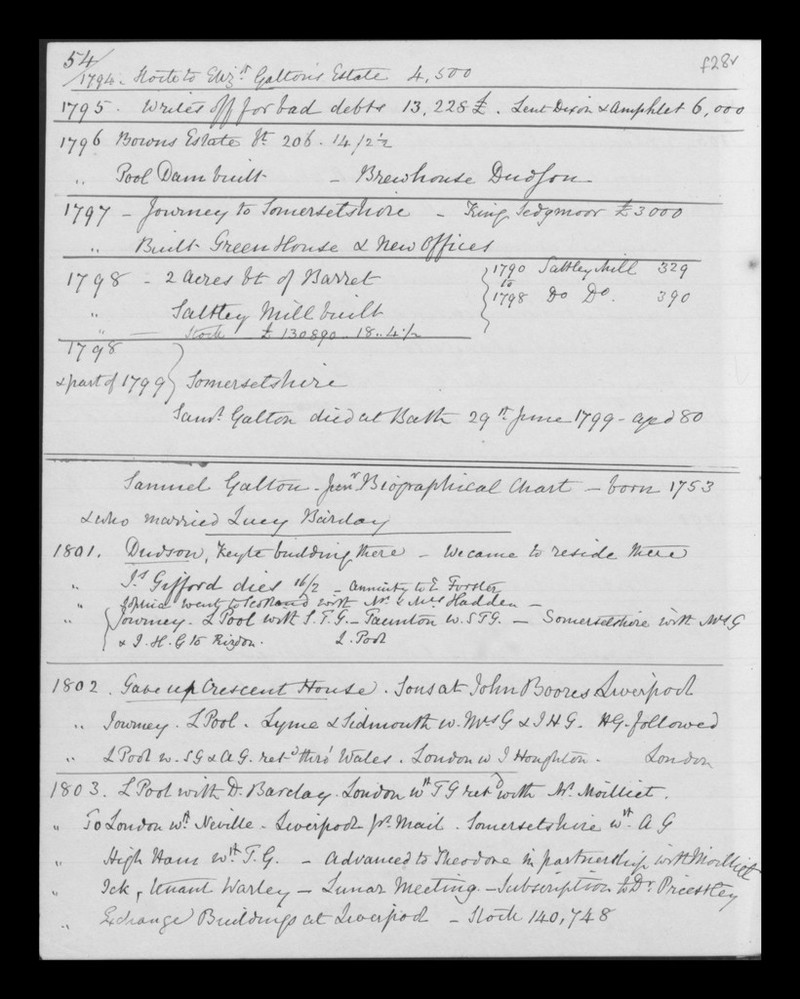 54
f28v
1794. Stock to Eliz.th Galton's Estate 4,500
1795. Writes off for bad debts 13,228 £. Lent Dixon & Amphlet 6,000
1796 Bowns Estate bt 206. 14/2½
" Pool Dam built - Brewhouse Dudson
1797 - Journey to Somersetshire - King Sedgmoor £3000
" Built Green House & New Offices
1798 - 2 Acres bt of Barret
1790 Saltley Mill 329
to
1798 Do Do. 390
" Saltley Mill built
" Stock £130890..18..4½
1798
& part of 1799 } Somersetshire
Saml. Galton died at Bath 29th June 1799 - aged 80
Samuel Galton - Junr Biographical Chart - born 1753
& who married Lucy Barclay
1801. Dudson, Keyte building there - We came to reside there
" Js Gifford dies 16/2 - annuity to E Forster
" Sophia went to Scotland with Mr & Mrs Hadden -
" Journey. L Pool with S.T.G. - Taunton w. STG. - Somersetshire with Mrs G
& J. H. G to . L. Pool
1802. Gave up Crescent House. Sons at John Boores Liverpool
" Journey. L Pool. Lyme & Sidmouth w. Mrs G & J H G. HG. followed
" L Pool w. S G & A G. retd thro' Wales. London w J Houghton. London
1803. L Pool with D. Barclay. London wth T G retd with Mr. Moilliet.
" To London wth Neville - Liverpool pr. Mail. Somersetshire wth A G
" High Ham wth T. G. - Advanced to Theodore in partnership with Moilliet
" Ick, tenant Warley - Lunar Meeting - Subscription to Dr Priestley
" Exchange Buildings at Liverpool - Stock 140,748